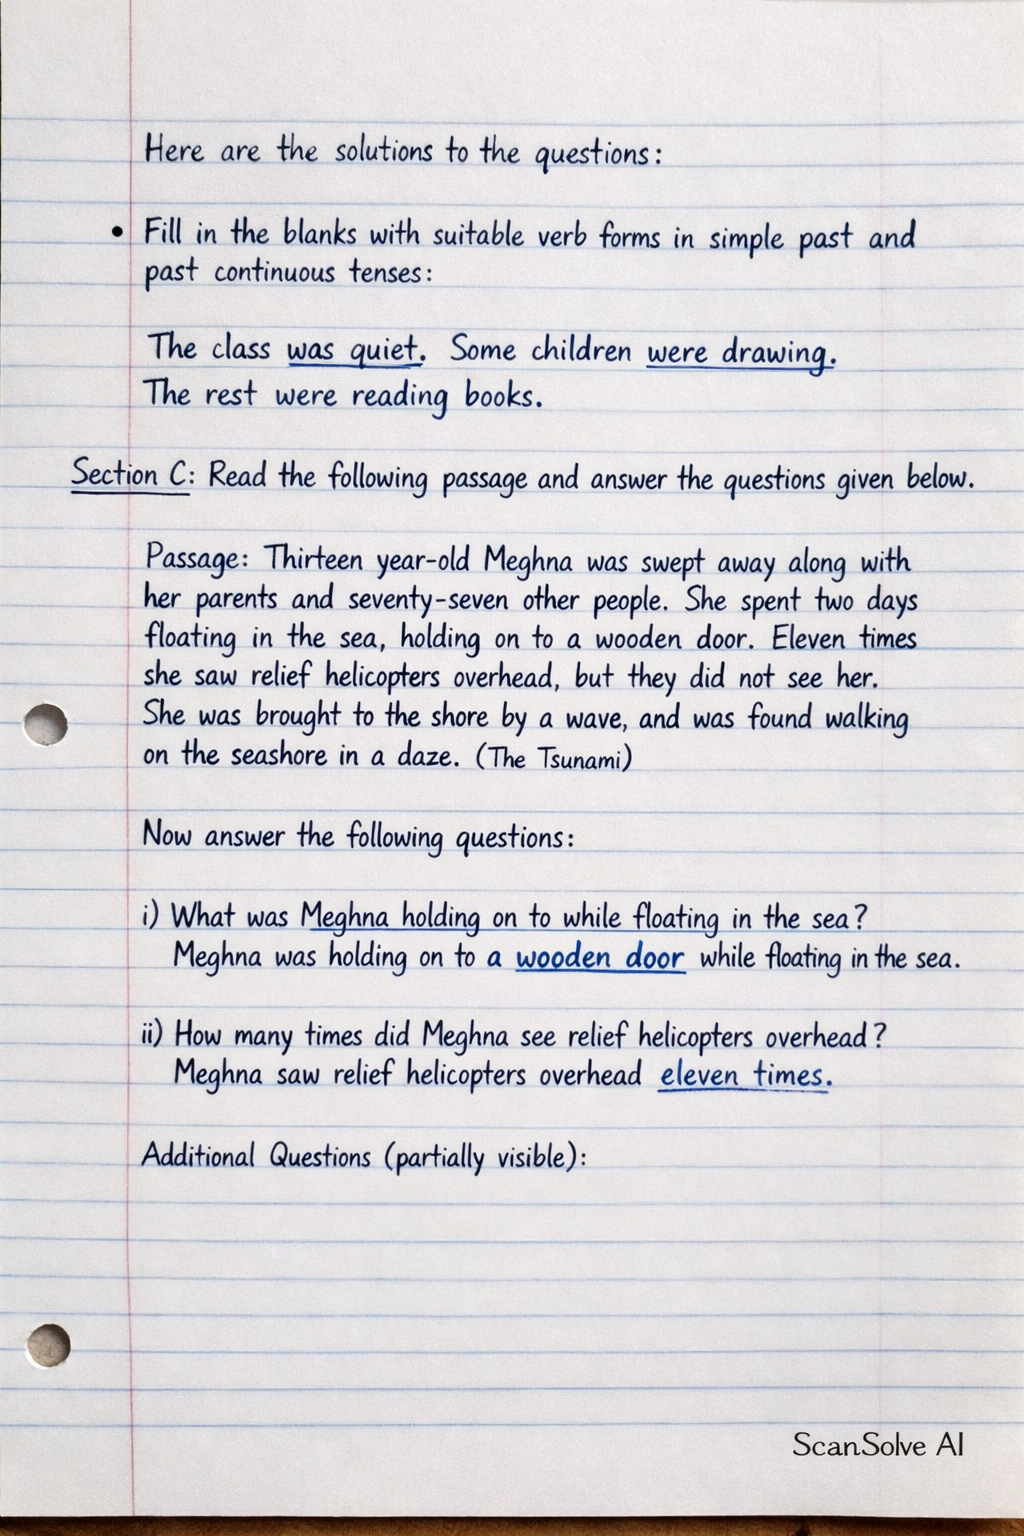 Here are the solutions to the questions:
• Fill in the blanks with suitable verb forms in simple past and
past continuous tenses:
The class was quiet. Some children were drawing.
The rest were reading books.
Section C: Read the following passage and answer the questions given below.
Passage: Thirteen year-old Meghna was swept away along with
her parents and seventy-seven other people. She spent two days
floating in the sea, holding on to a wooden door. Eleven times
she saw relief helicopters overhead, but they did not see her.
She was brought to the shore by a wave, and was found walking
on the seashore in a daze. (The Tsunami)
Now answer the following questions:
i) What was Meghna holding on to while floating in the sea?
Meghna was holding on to a wooden door while floating in the sea.
ii) How many times did Meghna see relief helicopters overhead?
Meghna saw relief helicopters overhead eleven times.
Additional Questions (partially visible):
ScanSolve AI